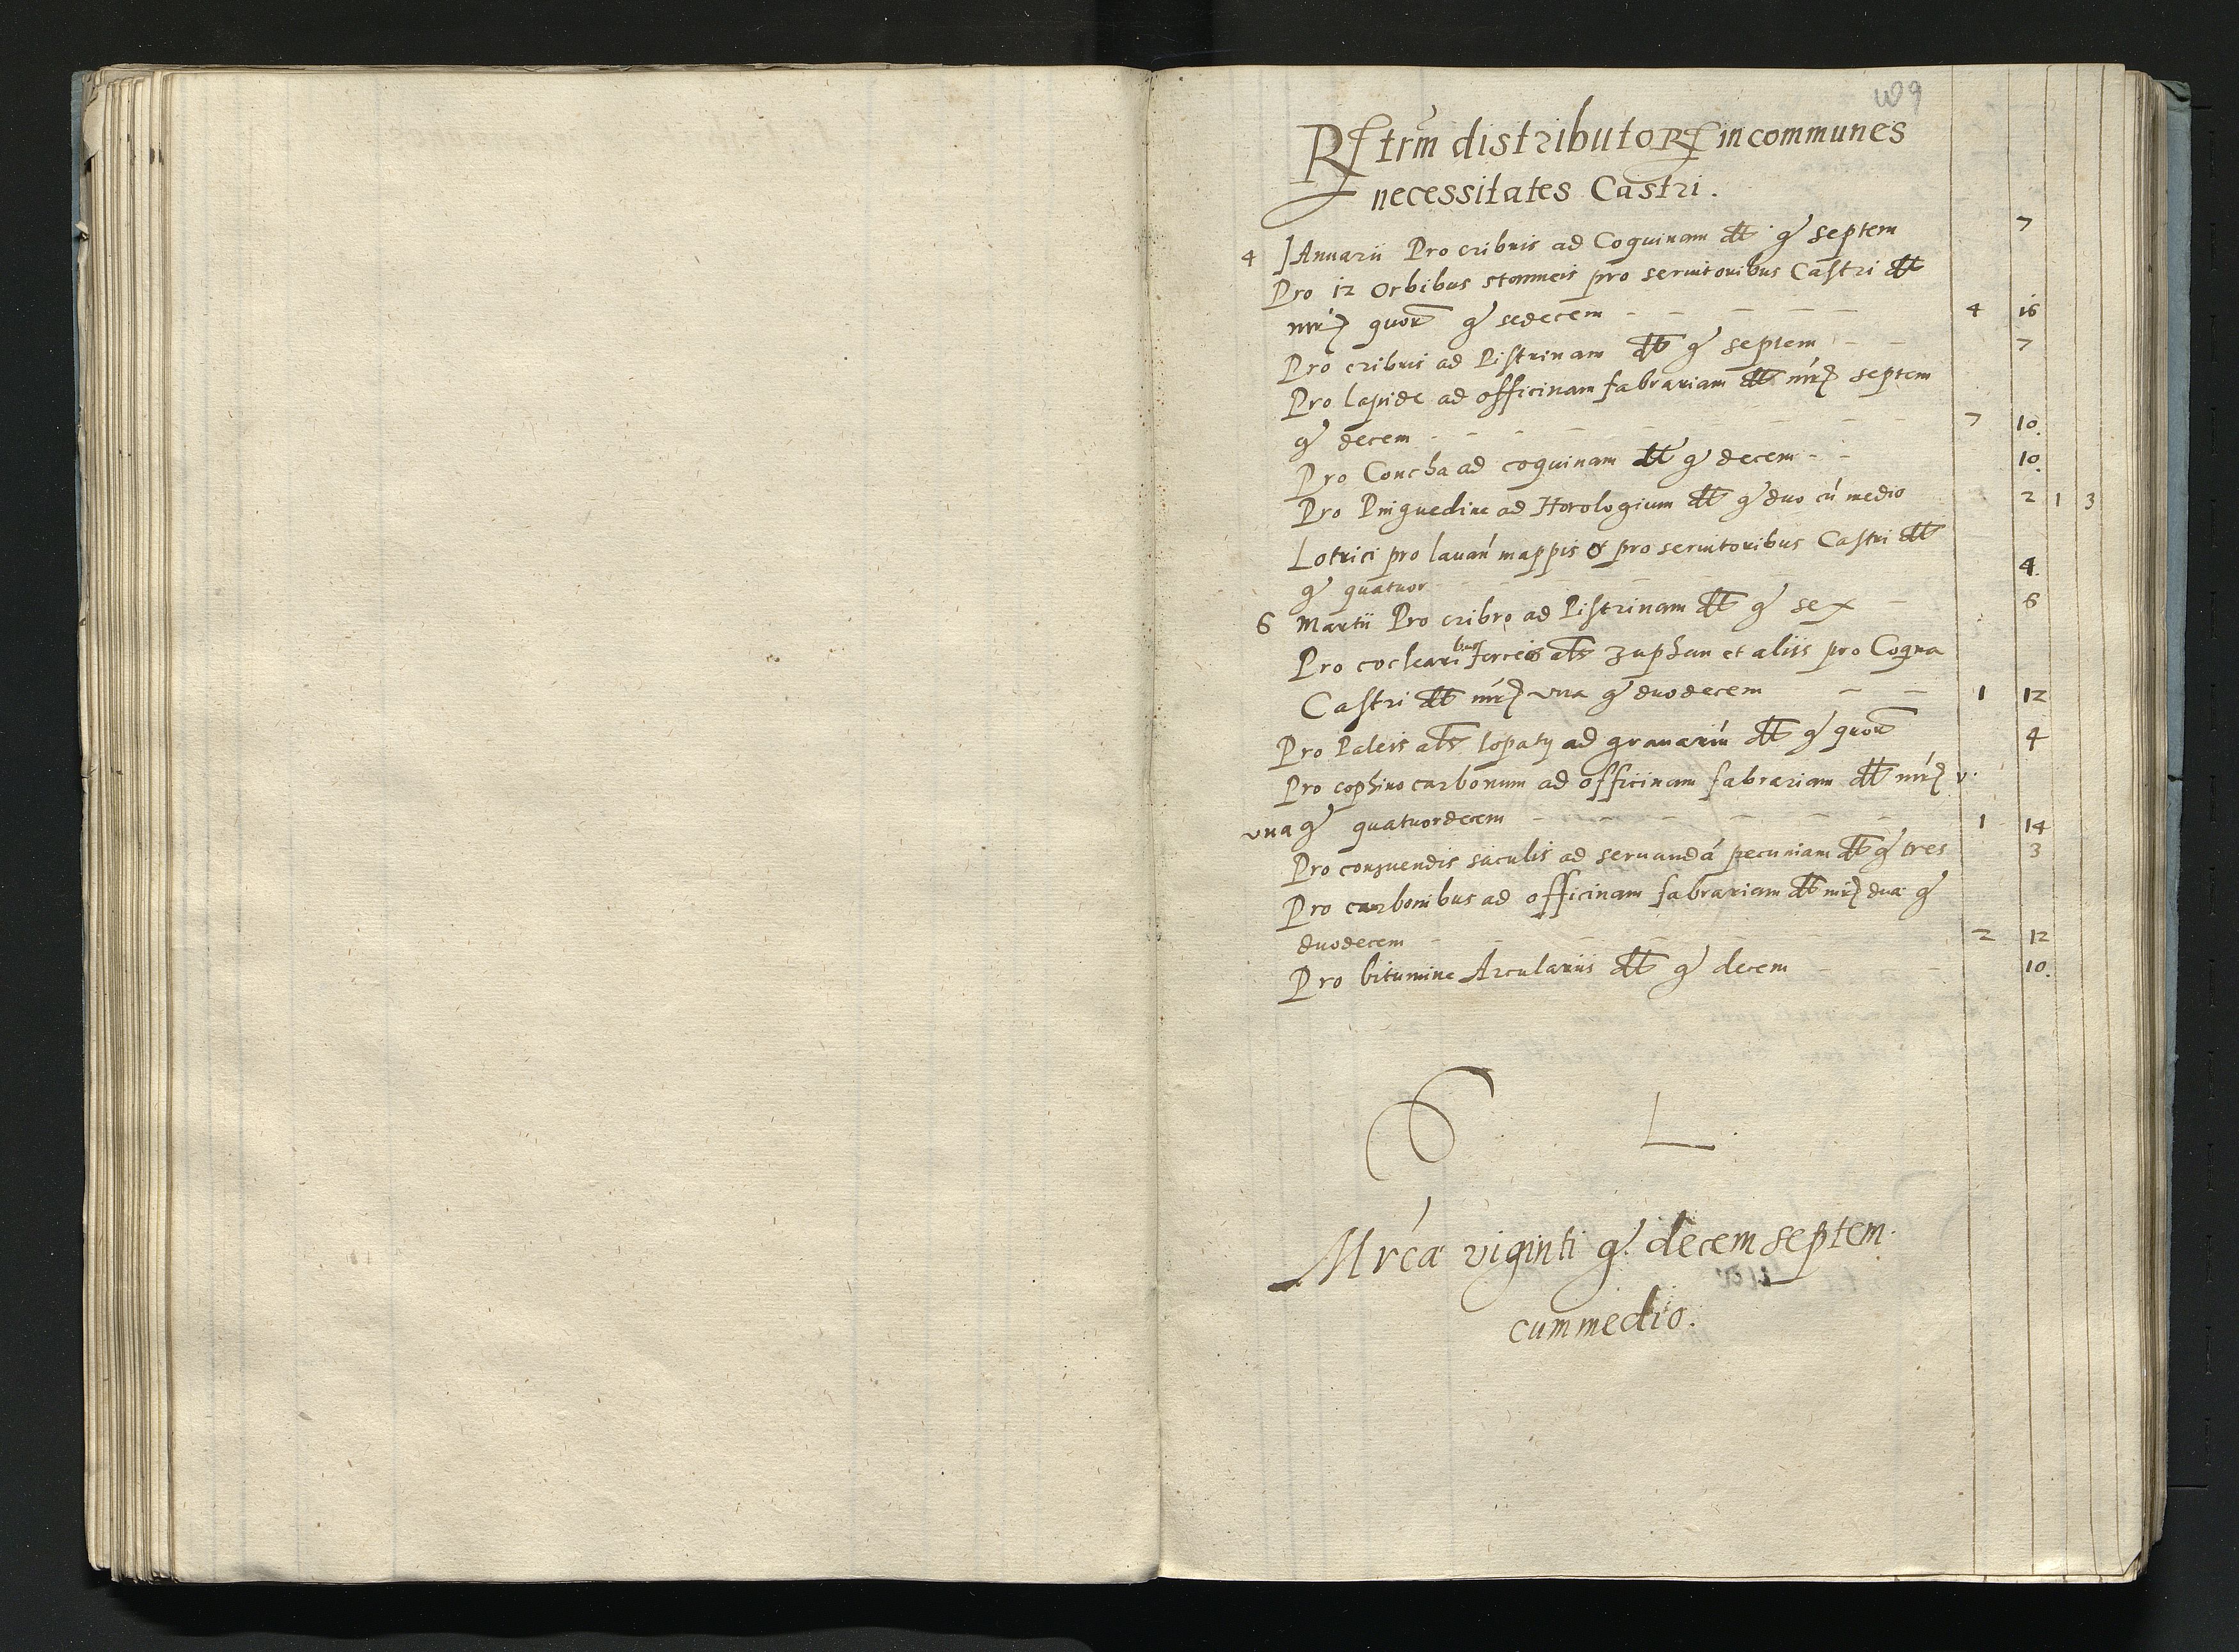 109
Rᵉtrm distributoRᵉ in communes
necessitates Castri.
4 JAnuarii Pro cribris ad Coquinam dtt gͬ septem 7
Pro 12 Orbibus stanneis pro seruitoribus Castri dtt
mrͨ quor gͬ sedecem 4 16
Pro cribris ad Pistrinam dtt gͬ septem 7
Pro lapide ad officinam fabrariam dtt mrͨ septem
gͬ decem 7 10.
Pro Concha ad coquinam dtt gͬ decem 10.
Pro Pinguedine ad Horologium dtt gͬ duo cú medio 2 1 3
Lotrici pro lauań mappis et pro seruitoribus Castri dtt
gͬ quatuor 4.
6 Martii Pro cribro ad Pistrinam dtt gͬ sex 6
Pro coclearibus ferreis als zuphan et aliis pro Coqna
Castri dtt mrͨ vna gͬ duodecem 1 12
Pro Paleis als lopaty ad granariú dtt gͬ quor 4
Pro cophino carbonum ad officinam fabrariam dtt mrͨ v.
vna gͬ quatuordecem 1 14
Pro consuendis saculis ad seruandá pecuniam dtt gͬ tres 3
Pro carbonibus ad officinam fabrariam dtt mrͨ dua gͬ
duodecem 2 12
Pro bitumine Arculariis dtt gͬ decem 10.
S L
Mrća viginti gͬ. decem septem
cum medio.